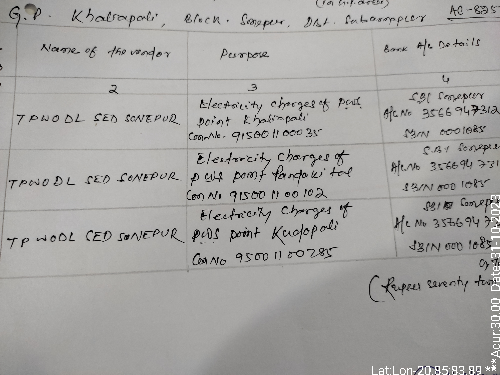 G.P. Khalsapali, Block. Sonepur, Dist. Subarnapur AC-835
Name of the vendor Purpose Bank A/c Details
2 3 4
TPWODL SED SONEPUR Electricity Charges of PWS point Khalipali Con No 915001100035 SBI Sonepur A/c No 3566947312 SBIN 0001085
TPWODL SED SONEPUR Electricity Charges of PWS point Con No 915001100102 SBI Sonepur A/c No 356694731 SBIN 0001085
TPWODL SED SONEPUR Electricity Charges of PWS point Kudopali Con No 95001100285 SBI Sonepur A/c No 35669473 SBIN 0001085
(Rupees seventy
Lat:Lon-20.85:83.89 **Acur:30.00 Date:31-10-2023